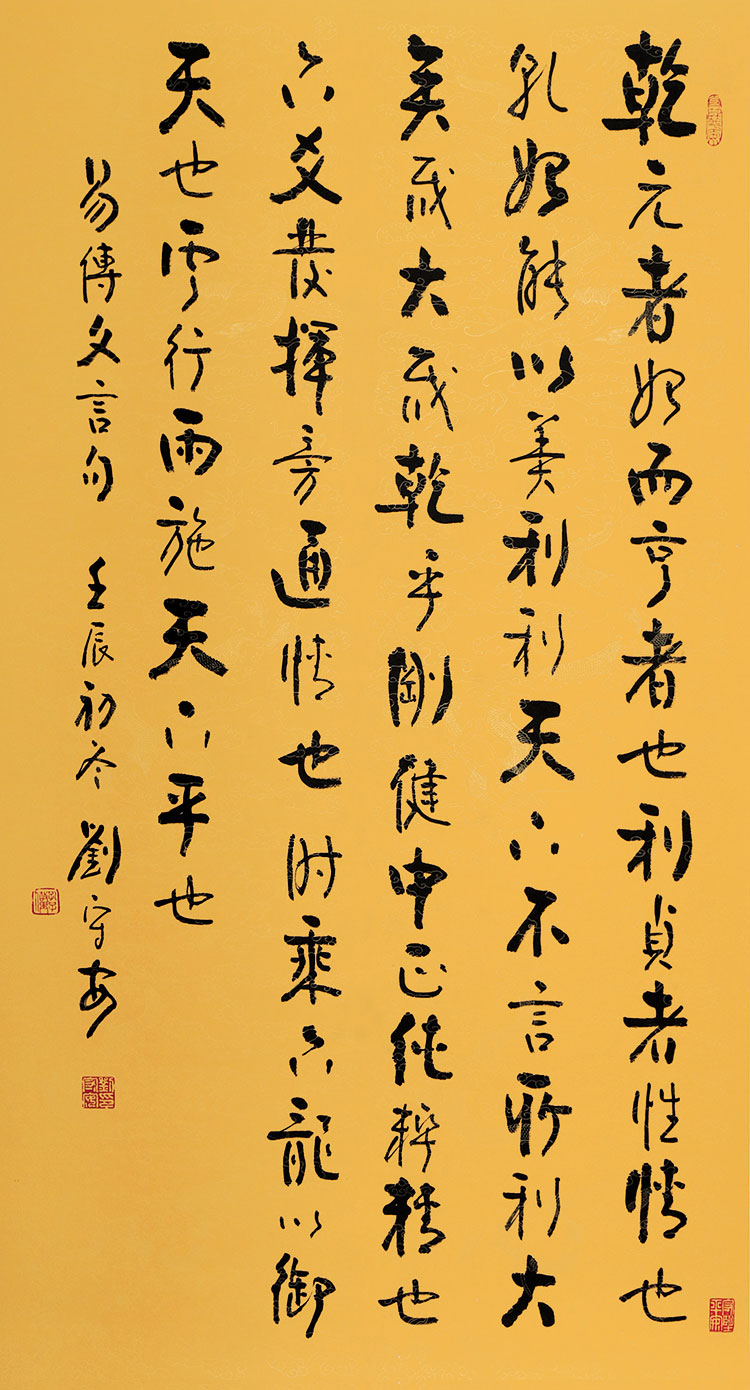 乾元者始而亨者也利貞者性情也
乾始能以美利利天下不言所利大
矣哉大哉乾乎剛健中正純粹精也
六爻發揮旁通情也時乘六龍以御
天也雲行雨施天下平也
易傳文言句 壬辰初冬 劉守安